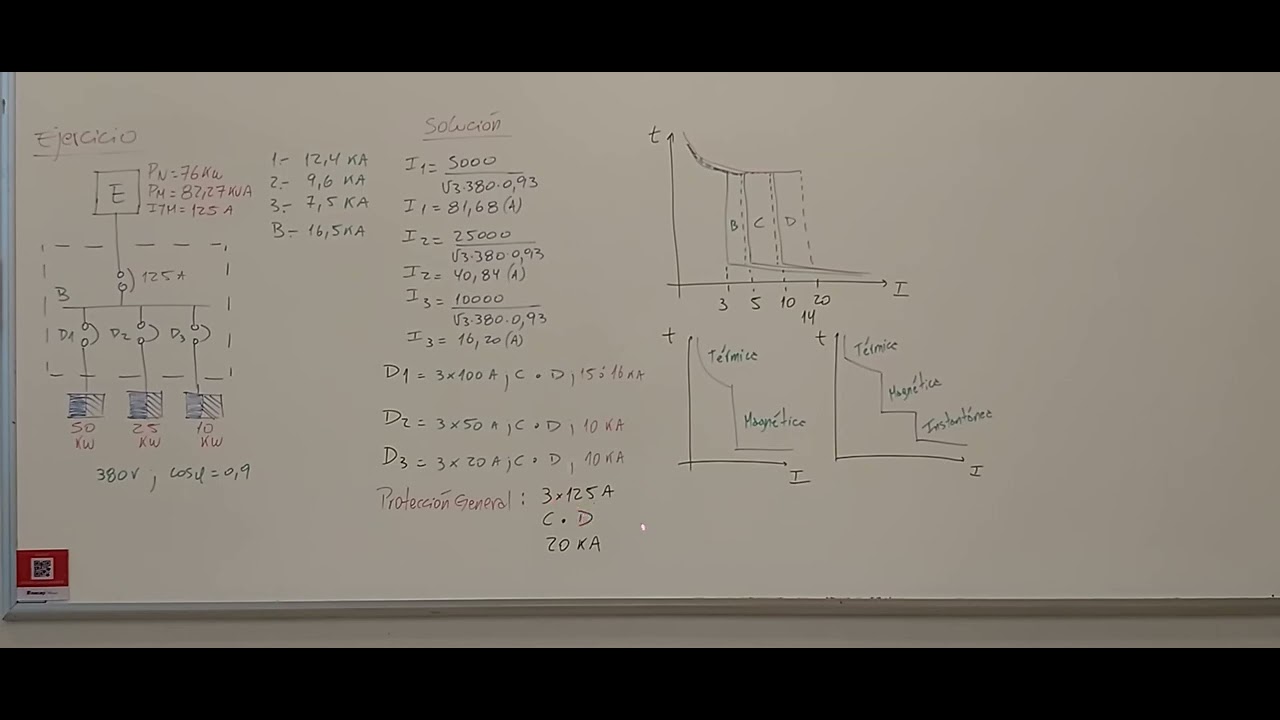 Ejercicio
E
PN=76KW
PM=82,27KVA
ITM=125 A
125 A
B
D1
D2
D3
50 KW
25 KW
10 KW
380V ; cosφ=0,9
1.- 12,4 KA
2.- 9,6 KA
3.- 7,5 KA
B.- 16,5KA
Solución
I1= 5000
√3·380·0,93
I1=81,68(A)
I2= 25000
√3·380·0,93
I2= 40,84(A)
I3= 10000
√3·380·0,93
I3= 16,20(A)
D1 = 3x100 A ; C o D ; 15 ó 16 KA
D2 = 3x50 A ; C o D ; 10 KA
D3 = 3x20 A ; C o D ; 10 KA
Protección General : 3x125 A
C o D
20 KA
t
B
C
D
3
5
10
20
14
I
t
Térmica
Magnética
I
t
Térmica
Magnética
Instantánea
I